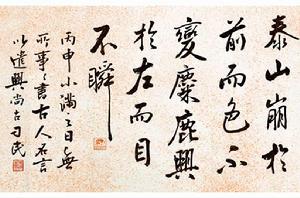 泰山崩於
前而色不
變麋鹿興
於左而目
不瞬
丙申小滿之日無
所事事書古人名言
以遣興尚古刁民